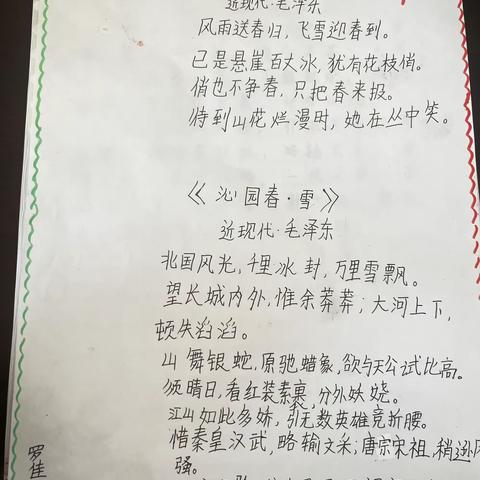 近现代·毛泽东
风雨送春归，飞雪迎春到。
已是悬崖百丈冰，犹有花枝俏。
俏也不争春，只把春来报。
待到山花烂漫时，她在丛中笑。
《沁园春·雪》
近现代·毛泽东
北国风光，千里冰封，万里雪飘。
望长城内外，惟余莽莽；大河上下，
顿失滔滔。
山舞银蛇，原驰蜡象，欲与天公试比高。
须晴日，看红装素裹，分外妖娆。
江山如此多娇，引无数英雄竞折腰。
惜秦皇汉武，略输文采；唐宗宋祖，稍逊风
强。
罗佳